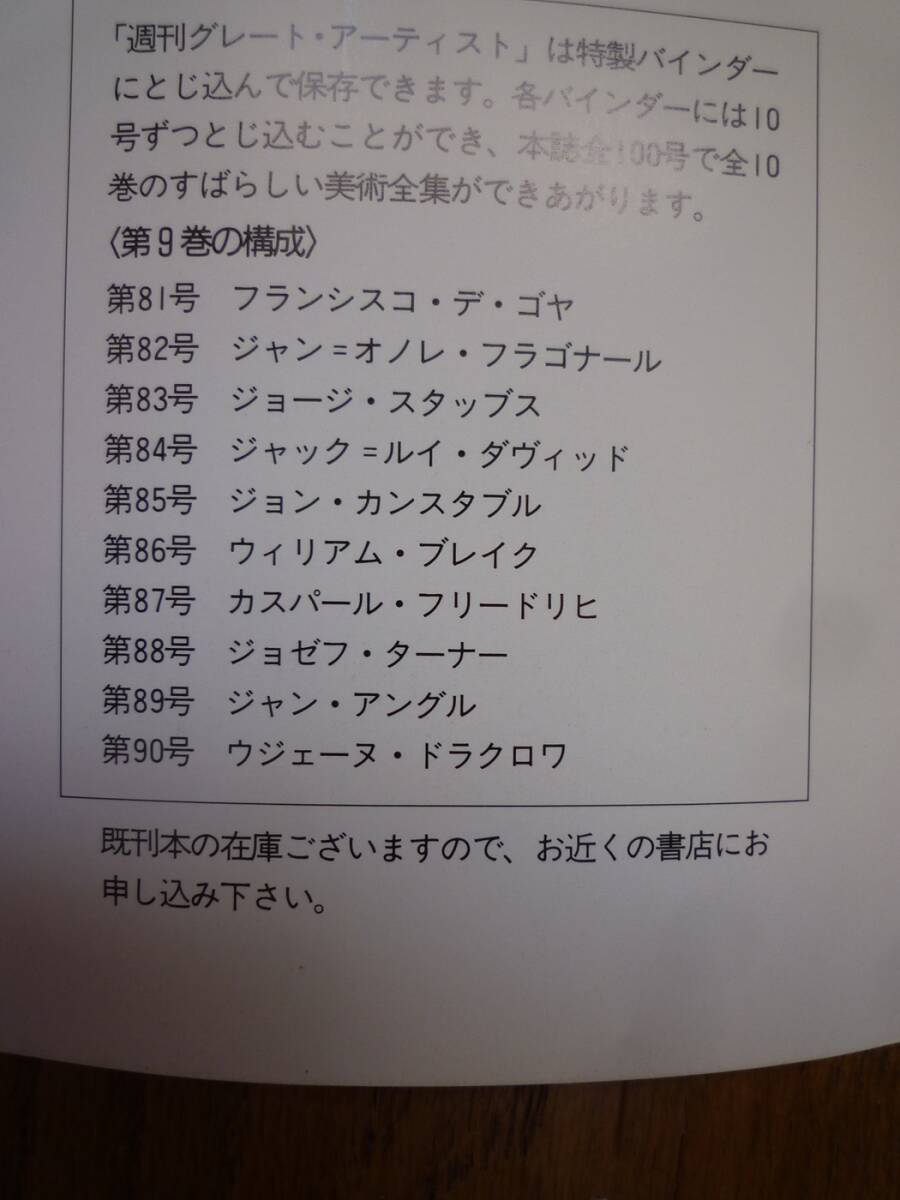 「週刊グレート・アーティスト」は特製バインダー
にとじ込んで保存できます。各バインダーには10
号ずつとじ込むことができ、本誌全100号で全10
巻のすばらしい美術全集ができあがります。
〈第9巻の構成〉
第81号 フランシスコ・デ・ゴヤ
第82号 ジャン=オノレ・フラゴナール
第83号 ジョージ・スタッブス
第84号 ジャック=ルイ・ダヴィッド
第85号 ジョン・カンスタブル
第86号 ウィリアム・ブレイク
第87号 カスパール・フリードリヒ
第88号 ジョゼフ・ターナー
第89号 ジャン・アングル
第90号 ウジェーヌ・ドラクロワ
既刊本の在庫ございますので、お近くの書店にお
申し込み下さい。